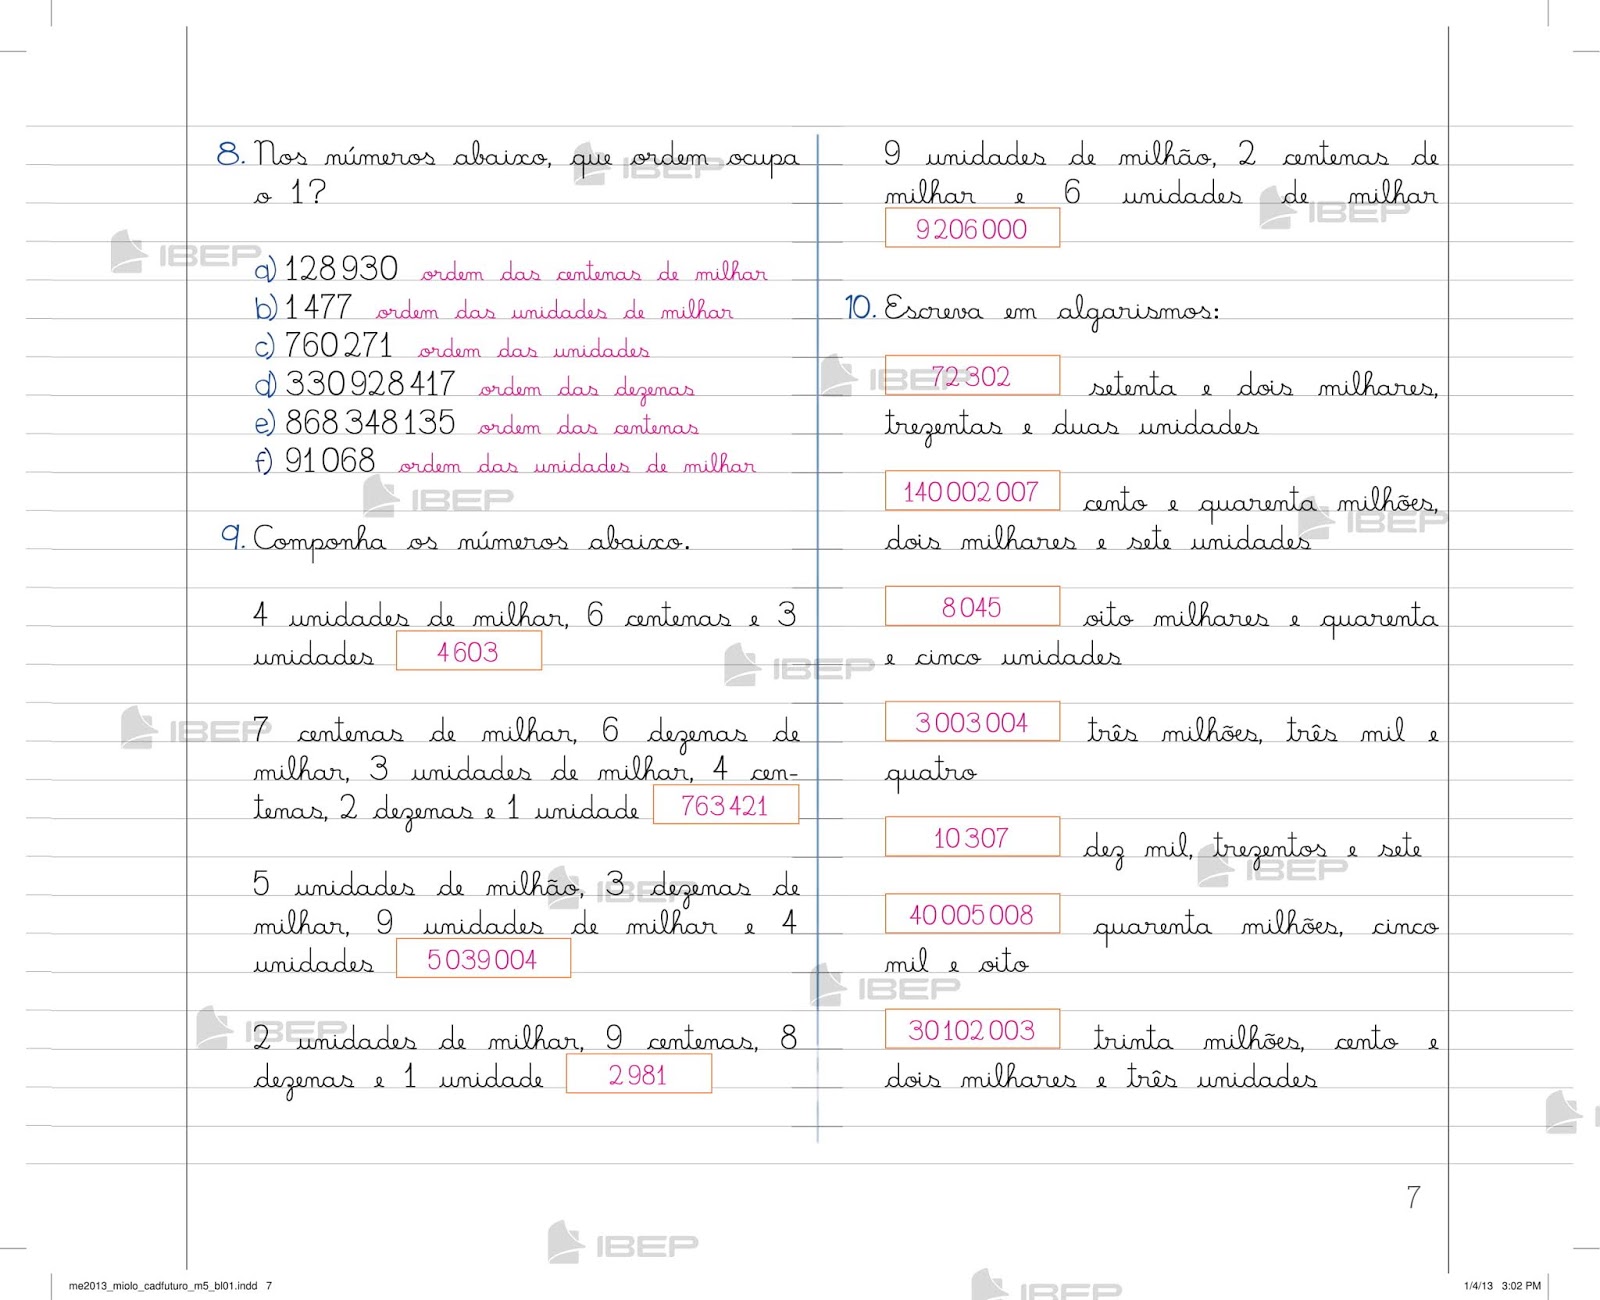 8. Nos números abaixo, que ordem ocupa
o 1?
a) 128 930 ordem das centenas de milhar
b) 1 477 ordem das unidades de milhar
c) 760 271 ordem das unidades
d) 330 928 417 ordem das dezenas
e) 868 348 135 ordem das centenas
f) 91 068 ordem das unidades de milhar
9. Componha os números abaixo.
4 unidades de milhar, 6 centenas e 3
unidades 4 603
7 centenas de milhar, 6 dezenas de
milhar, 3 unidades de milhar, 4 cen-
tenas, 2 dezenas e 1 unidade 763 421
5 unidades de milhão, 3 dezenas de
milhar, 9 unidades de milhar e 4
unidades 5 039 004
2 unidades de milhar, 9 centenas, 8
dezenas e 1 unidade 2 981
9 unidades de milhão, 2 centenas de
milhar e 6 unidades de milhar
9 206 000
10. Escreva em algarismos:
72 302 setenta e dois milhares,
trezentas e duas unidades
140 002 007 cento e quarenta milhões,
dois milhares e sete unidades
8 045 oito milhares e quarenta
e cinco unidades
3 003 004 três milhões, três mil e
quatro
10 307 dez mil, trezentos e sete
40 005 008 quarenta milhões, cinco
mil e oito
30 102 003 trinta milhões, cento e
dois milhares e três unidades
7
me2013_miolo_cadfuturo_m5_bl01.indd 7
1/4/13 3:02 PM
IBEP
IBEP
IBEP
IBEP
IBEP
IBEP
IBEP
IBEP
IBEP
IBEP
IBEP
IBEP
IBEP
IBEP